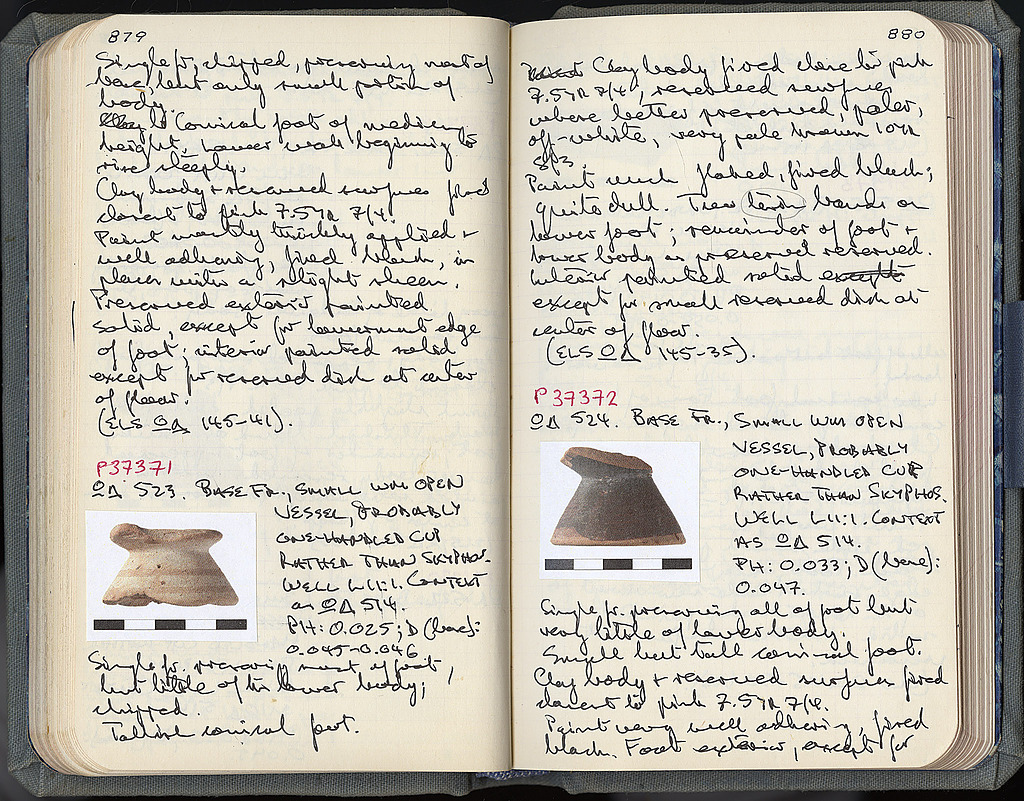 879
Single fr., chipped, preserving most of
base, but only small portion of
body.
Conical foot of medium
height. Lower wall beginning to
rise steeply.
Clay body + reserved surfaces fired
closest to pink 7.5YR 7/4.
Paint mostly thickly applied +
well adhering, fired black, in
places with a slight sheen.
Preserved exterior painted
solid, except for lowermost edge
of foot; interior painted solid
except for reserved disk at center
of floor.
(ELS ΟΔ 145-141).
P37371
ΟΔ 523. BASE FR., SMALL WM OPEN
VESSEL, PROBABLY
ONE-HANDLED CUP
RATHER THAN SKYPHOS.
WELL L11:1. CONTEXT
as ΟΔ 514.
PH: 0.025; D (base):
0.045-0.046
Single fr. preserving most of foot,
but little of the lower body;
chipped.
Tallish conical foot.
880
Clay body fired close to pink
7.5YR 7/4; reserved surfaces
where better preserved, paler,
off-white, very pale brown 10YR
8/3.
Paint much flaked, fired black;
quite dull. Two thin bands on
lower foot; remainder of foot +
lower body as preserved reserved.
Interior painted solid except
except for small reserved disk at
center of floor.
(ELS ΟΔ 145-35).
P37372
ΟΔ 524. BASE FR., SMALL WM OPEN
VESSEL, PROBABLY
ONE-HANDLED CUP
RATHER THAN SKYPHOS.
WELL L11:1. CONTEXT
AS ΟΔ 514.
PH: 0.033; D (base):
0.047.
Single fr. preserving all of foot but
very little of lower body.
Small but tall conical foot.
Clay body + reserved surfaces fired
closest to pink 7.5YR 7/4.
Paint very well adhering, fired
black. Foot exterior, except for